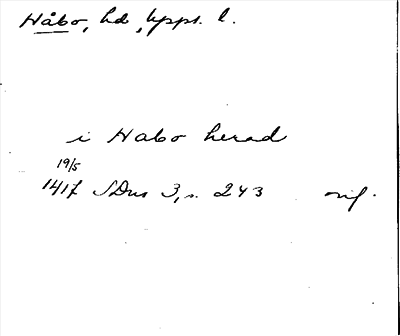 Håbo, hd, Upps. l.
i Habo herad
19/5
1417 SDns 3, s. 243 orig.